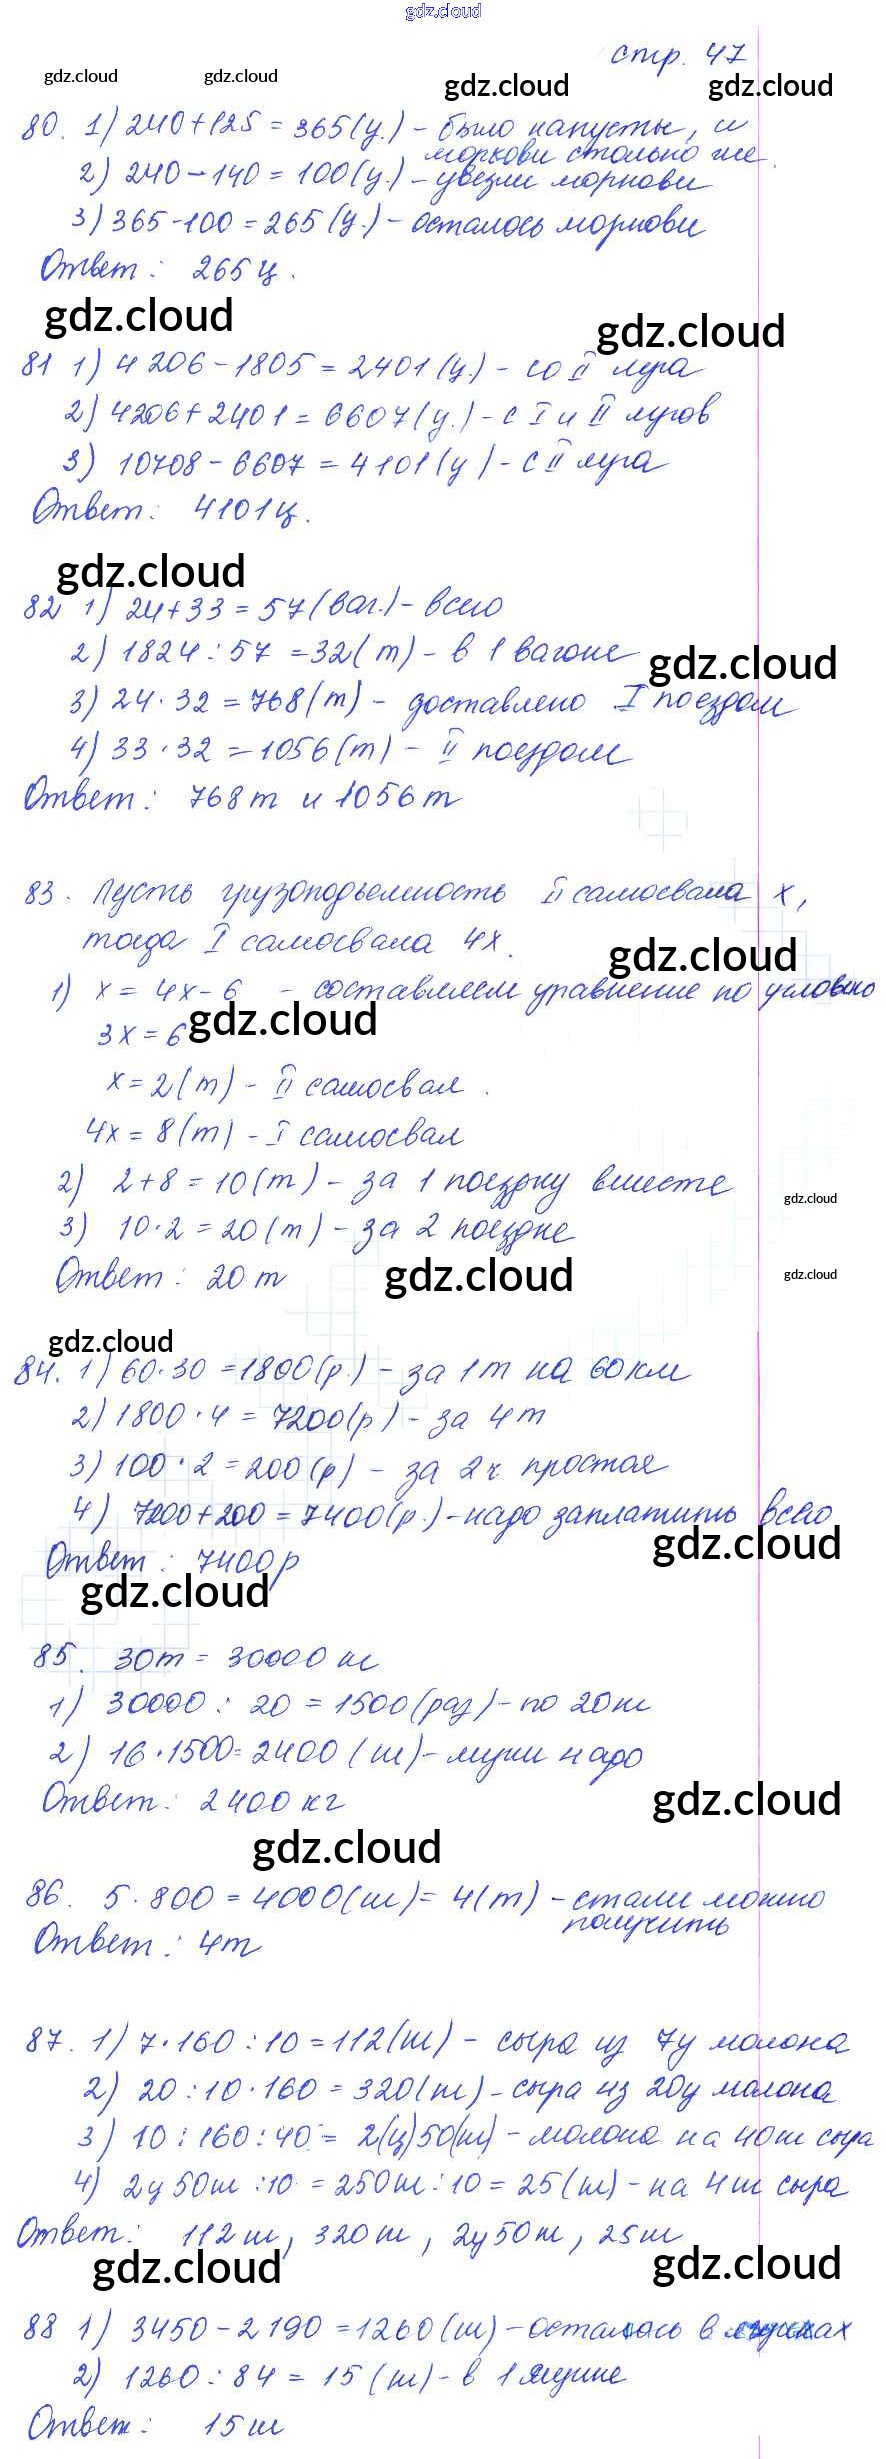 gdz.cloud
стр. 47
gdz.cloud gdz.cloud gdz.cloud gdz.cloud
80. 1) 240+125 = 365 (ц.) - было капусты, и
моркови столько же.
2) 240-140 = 100 (ц.) - увезли моркови
3) 365-100 = 265 (ц.) - осталось моркови
Ответ: 265 ц.
gdz.cloud gdz.cloud
81 1) 4206-1805 = 2401 (ц.) - со II луга
2) 4206+2401 = 6607 (ц.) - с I и II лугов
3) 10708-6607 = 4101 (ц) - с II луга
Ответ: 4101 ц.
gdz.cloud
82 1) 24+33 = 57 (ваг.) - всего
2) 1824 : 57 = 32 (т) - в 1 вагоне
gdz.cloud
3) 24 · 32 = 768 (т) - доставлено I поездом
4) 33 · 32 = 1056 (т) - II поездом
Ответ: 768 т и 1056 т
83. Пусть грузоподъемность II самосвала x,
тогда I самосвала 4x.
gdz.cloud
1) x = 4x-6 - составляем уравнение по условию
gdz.cloud
3x = 6
x = 2 (т) - II самосвал.
4x = 8 (т) - I самосвал
2) 2+8 = 10 (т) - за 1 поездку вместе
gdz.cloud
3) 10·2 = 20 (т) - за 2 поездке
Ответ: 20 т
gdz.cloud gdz.cloud
gdz.cloud
84. 1) 60·30 = 1800 (р.) - за 1 т на 60 км
2) 1800 · 4 = 7200 (р) - за 4 т
3) 100 · 2 = 200 (р) - за 2 ч простоя
4) 7200+200 = 7400 (р.) - надо заплатить всего
gdz.cloud
Ответ: 7400 р
gdz.cloud
85. 30 т = 30000 кг
1) 30000 : 20 = 1500 (раз) - по 20 кг
2) 16 · 1500 = 2400 (кг) - муки надо
Ответ: 2400 кг
gdz.cloud
gdz.cloud
86. 5 · 800 = 4000 (кг) = 4 (т) - стали можно
получить
Ответ: 4 т
87. 1) 7·160 : 10 = 112 (кг) - сыра из 7 ц молока
2) 20 : 10 · 160 = 320 (кг) - сыра из 20 ц молока
3) 10 : 160 : 40 = 2 (ц) 50 (кг) - молока на 40 кг сыра
4) 2 ц 50 кг : 10 = 250 кг : 10 = 25 (кг) - на 4 кг сыра
Ответ: 112 кг, 320 кг, 2 ц 50 кг, 25 кг
gdz.cloud gdz.cloud
88 1) 3450-2190 = 1260 (кг) - осталось в ящиках
2) 1260 : 84 = 15 (кг) - в 1 ящике
Ответ: 15 кг